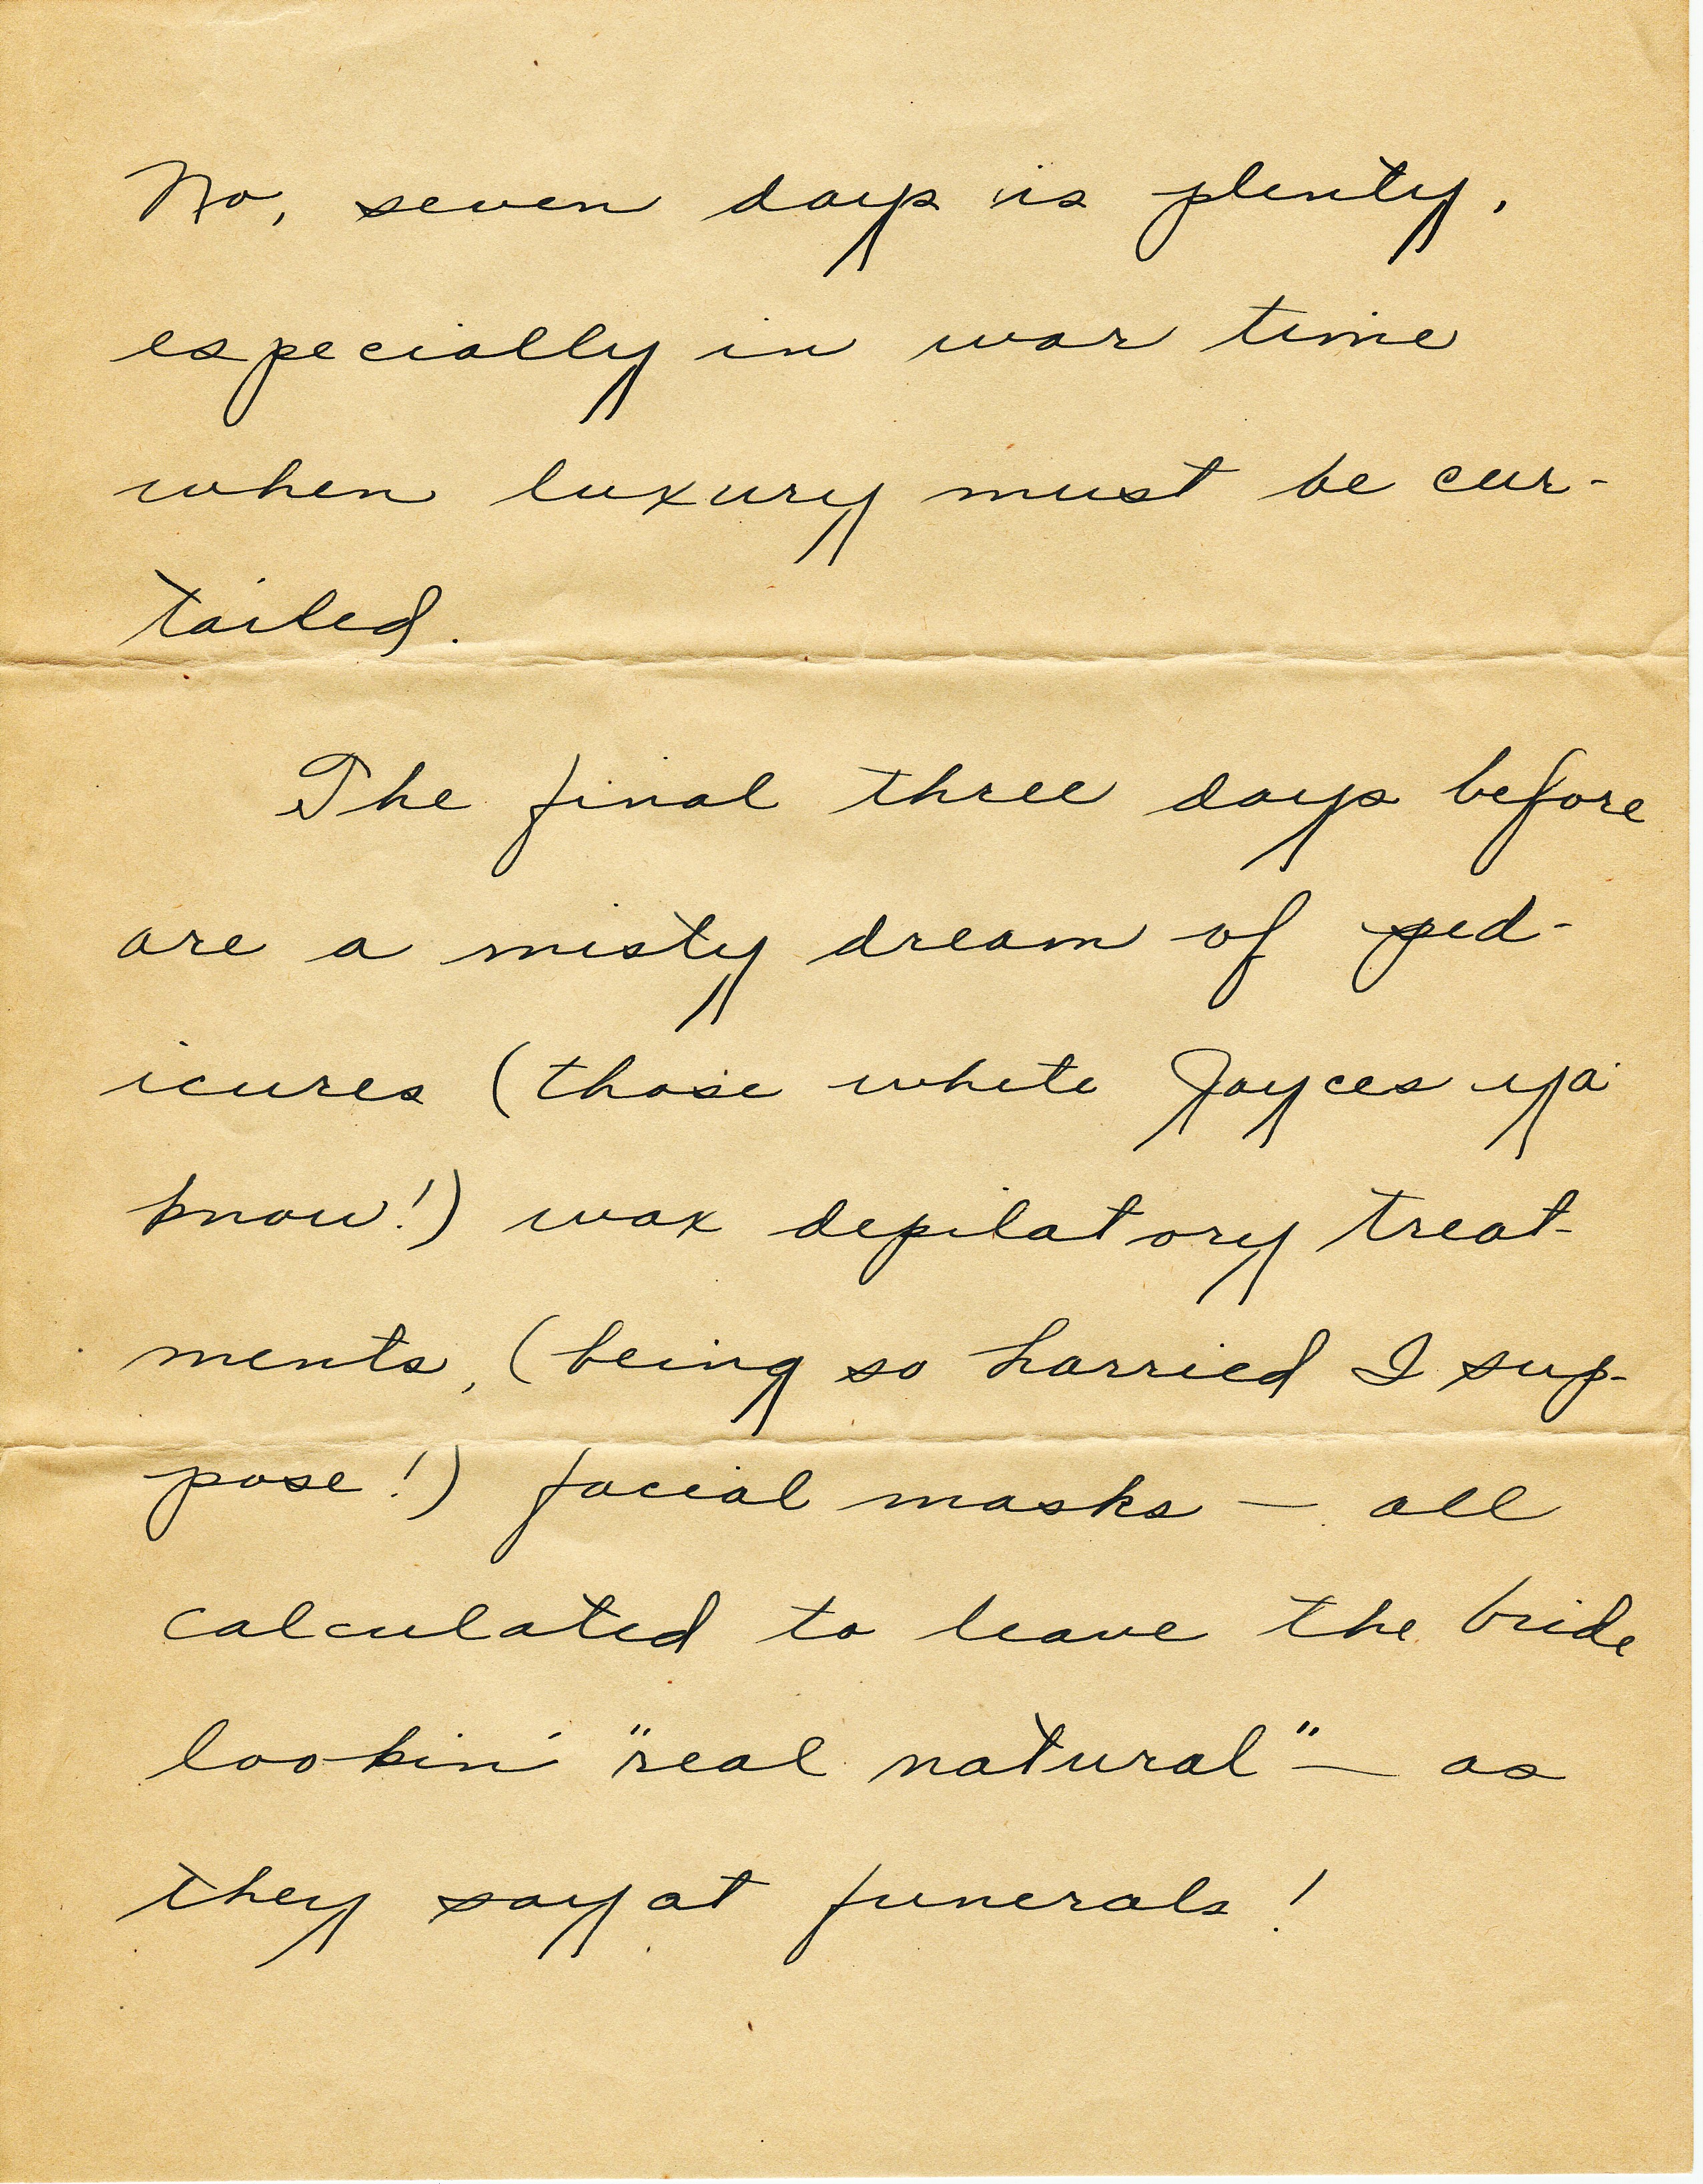 No, seven days is plenty,
especially in war time
when luxury must be cur-
tailed.
The final three days before
are a misty dream of ped-
icures (those white Joyces ya'
know!) wax depilatory treat-
ments, (being so harried I sup-
pose!) facial masks — all
calculated to leave the bride
lookin' "real natural" — as
they say at funerals!